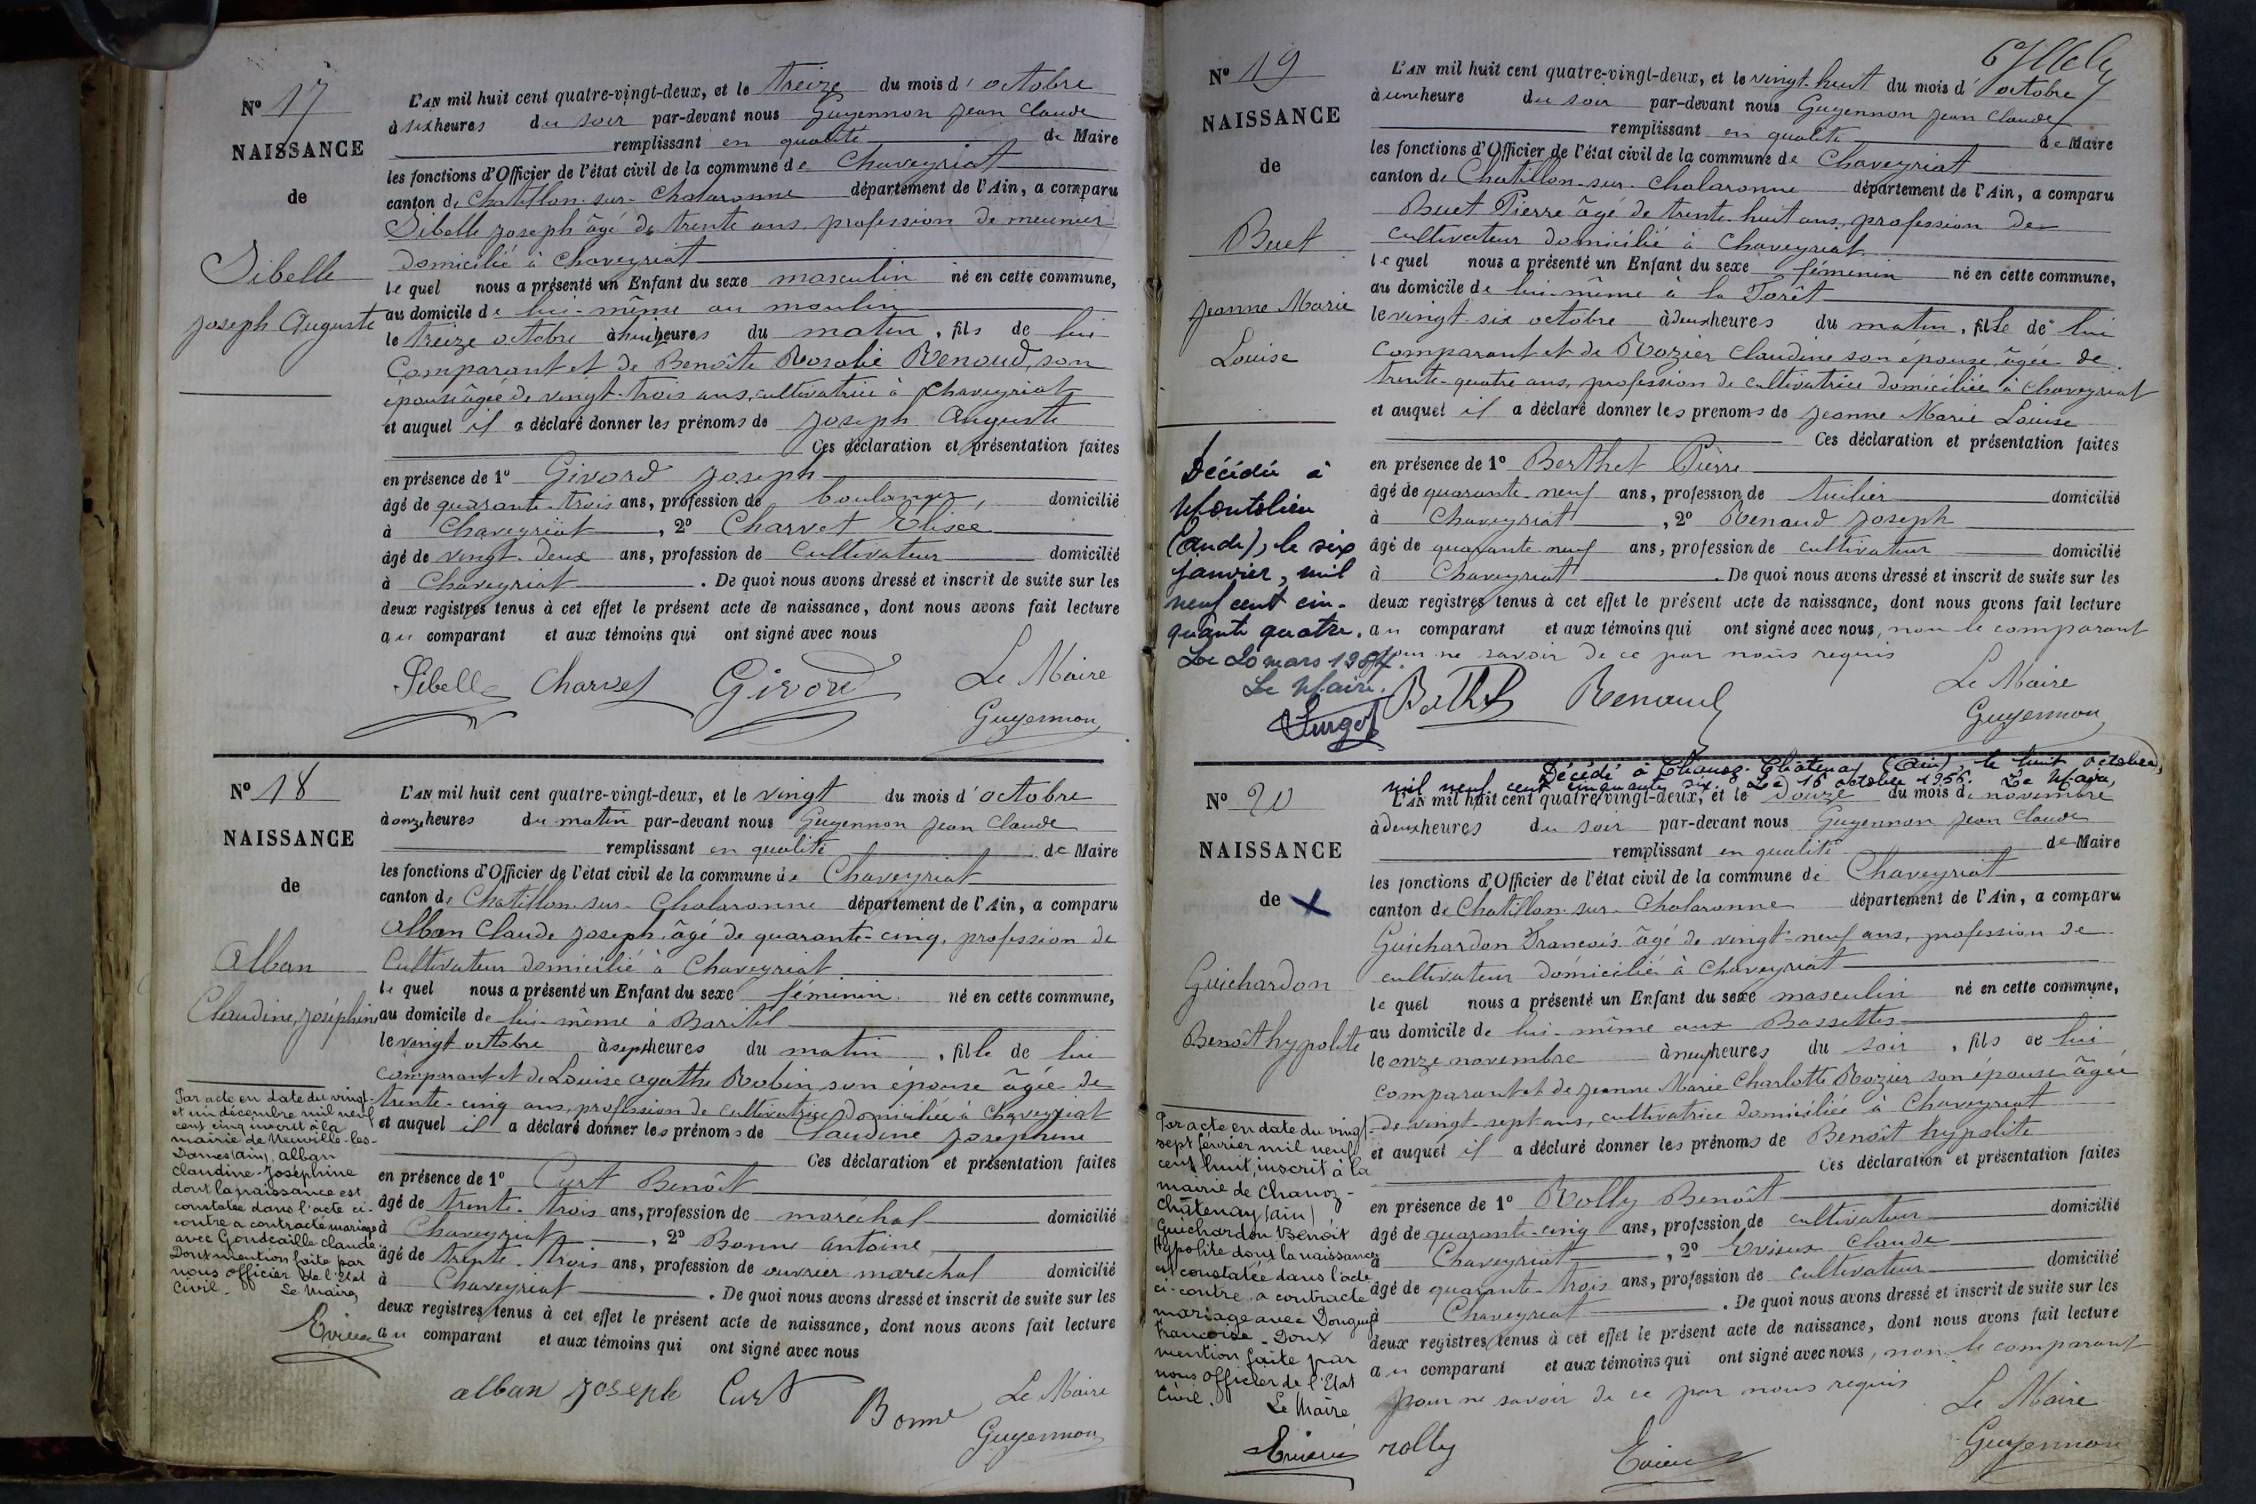 N° 17
NAISSANCE
de
Sibelle
Joseph Auguste
L'AN mil huit cent quatre-vingt-deux, et le treize du mois d'octobre
à six heures du soir par-devant nous Guyennon Jean Claude
remplissant en qualité de Maire
les fonctions d'Officier de l'état civil de la commune de Chaveyriat
canton de Chatillon-sur-Chalaronne département de l'Ain, a comparu
Sibelle Joseph âgé de trente ans, profession de meunier
domicilié à Chaveyriat
lequel nous a présenté un Enfant du sexe masculin né en cette commune,
au domicile de lui-même au moulin
le treize octobre à heures du matin, fils de lui
Comparant et de Benoîte Rosalie Renoud, son
épouse âgée de vingt-trois ans, cultivatrice à Chaveyriat
et auquel il a déclaré donner les prénoms de Joseph Auguste
Ces déclaration et présentation faites
en présence de 1° Givord Joseph
âgé de quarante-trois ans, profession de boulanger, domicilié
à Chaveyriat, 2° Charvet Elisée
âgé de vingt-deux ans, profession de cultivateur domicilié
à Chaveyriat. De quoi nous avons dressé et inscrit de suite sur les
deux registres tenus à cet effet le présent acte de naissance, dont nous avons fait lecture
au comparant et aux témoins qui ont signé avec nous
Sibelle Charvet Givord Le Maire
Guyennon
N° 18
NAISSANCE
de
Alban
Claudine, Joséphine
Par acte en date du vingt-
et un décembre mil neuf
cent cinq inscrit à la
mairie de Neuville-les-
Dames (ain), alban
Claudine-Joséphine
dont la naissance est
constatée dans l'acte ci-
contre a contracté mariage
avec Goudcaille Claude.
Dont mention faite par
nous officier de l'Etat
Civil. Le Maire,
Evieux
L'AN mil huit cent quatre-vingt-deux, et le vingt du mois d'octobre
à onze heures du matin par-devant nous Guyennon Jean Claude
remplissant en qualité de Maire
les fonctions d'Officier de l'état civil de la commune de Chaveyriat
canton de Chatillon-sur-Chalaronne département de l'Ain, a comparu
Alban Claude Joseph, âgé de quarante-cinq, profession de
Cultivateur domicilié à Chaveyriat
lequel nous a présenté un Enfant du sexe féminin né en cette commune,
au domicile de lui-même à Baritel
le vingt octobre à sept heures du matin, fille de lui
comparant et de Louise Agathe Robin son épouse âgée de
trente-cinq ans, profession de cultivatrice domiciliée à Chaveyriat
et auquel il a déclaré donner les prénoms de Claudine Josephine
Ces déclaration et présentation faites
en présence de 1° Curt Benoît
âgé de trente-trois ans, profession de maréchal domicilié
à Chaveyriat, 2° Bonne antoine
âgé de trente-trois ans, profession de ouvrier maréchal domicilié
à Chaveyriat. De quoi nous avons dressé et inscrit de suite sur les
deux registres tenus à cet effet le présent acte de naissance, dont nous avons fait lecture
au comparant et aux témoins qui ont signé avec nous
alban Joseph Curt Bonne Le Maire
Guyennon
N° 19
NAISSANCE
de
Buet
Jeanne Marie
Louise
Décédée à
Montolieu
(Aude), le six
Janvier, mil
neuf cent cin-
quante quatre.
Le Maire.
L'AN mil huit cent quatre-vingt-deux, et le vingt-huit du mois d'octobre
à une heure du soir par-devant nous Guyennon Jean Claude
remplissant en qualité de Maire
les fonctions d'Officier de l'état civil de la commune de Chaveyriat
canton de Chatillon-sur-Chalaronne département de l'Ain, a comparu
Buet Pierre âgé de trente-huit ans, profession de
cultivateur domicilié à Chaveyriat
lequel nous a présenté un Enfant du sexe féminin né en cette commune,
au domicile de lui-même à la Forêt
le vingt-six octobre à deux heures du matin, fille de lui
comparant et de Rozier Claudine son épouse, âgée de
trente-quatre ans, profession de cultivatrice domiciliée à Chaveyriat
et auquel il a déclaré donner les prenoms de Jeanne Marie Louise
Ces déclaration et présentation faites
en présence de 1° Berthet Pierre
âgé de quarante-neuf ans, profession de tuilier domicilié
à Chaveyriat, 2° Renaud Joseph
âgé de quarante-neuf ans, profession de cultivateur domicilié
à Chaveyriat. De quoi nous avons dressé et inscrit de suite sur les
deux registres tenus à cet effet le présent acte de naissance, dont nous avons fait lecture
au comparant et aux témoins qui ont signé avec nous, non le comparant
pour ne savoir de ce par nous requis
Renaud Le Maire
Guyennon
Décédé à Chanoz-Châtenay (Ain), le huit octobre,
mil neuf cent cinquante six. Le 16 octobre 1956. Le Maire,
N° 20
NAISSANCE
de X
Guichardon
Benoît hypolite
Par acte en date du vingt-
sept février mil neuf
cent huit, inscrit à la
mairie de Chanoz-
Châtenay (ain)
Guichardon Benoit
Hypolite dont la naissance
est constatée dans l'acte
ci-contre, a contracté
mariage avec Donguy
Francoise. Dont
mention faite par
nous officier de l'Etat
Civil. Le Maire
Evieux
L'AN mil huit cent quatre-vingt-deux, et le douze du mois de novembre
à deux heures du soir par-devant nous Guyennon Jean Claude
remplissant en qualité de Maire
les fonctions d'Officier de l'état civil de la commune de Chaveyriat
canton de Chatillon-sur-Chalaronne département de l'Ain, a comparu
Guichardon Francois âgé de vingt-neuf ans, profession de
cultivateur domicilié à Chaveyriat
lequel nous a présenté un Enfant du sexe masculin né en cette commune,
au domicile de lui-même aux Bassettes
le onze novembre à neuf heures du soir, fils de lui
comparant et de Jeanne Marie Charlotte Rozier son épouse âgée
de vingt-sept ans, cultivatrice domiciliée à Chaveyriat
et auquel il a déclaré donner les prénoms de Benoît hypolite
Ces déclaration et présentation faites
en présence de 1° Rolly Benoît
âgé de quarante-cinq ans, profession de cultivateur domicilié
à Chaveyriat, 2° Evieux Claude
âgé de quarante-trois ans, profession de cultivateur domicilié
à Chaveyriat. De quoi nous avons dressé et inscrit de suite sur les
deux registres tenus à cet effet le présent acte de naissance, dont nous avons fait lecture
au comparant et aux témoins qui ont signé avec nous, non le comparant
pour ne savoir de ce par nous requis
rolly Evieux Le Maire
Guyennon